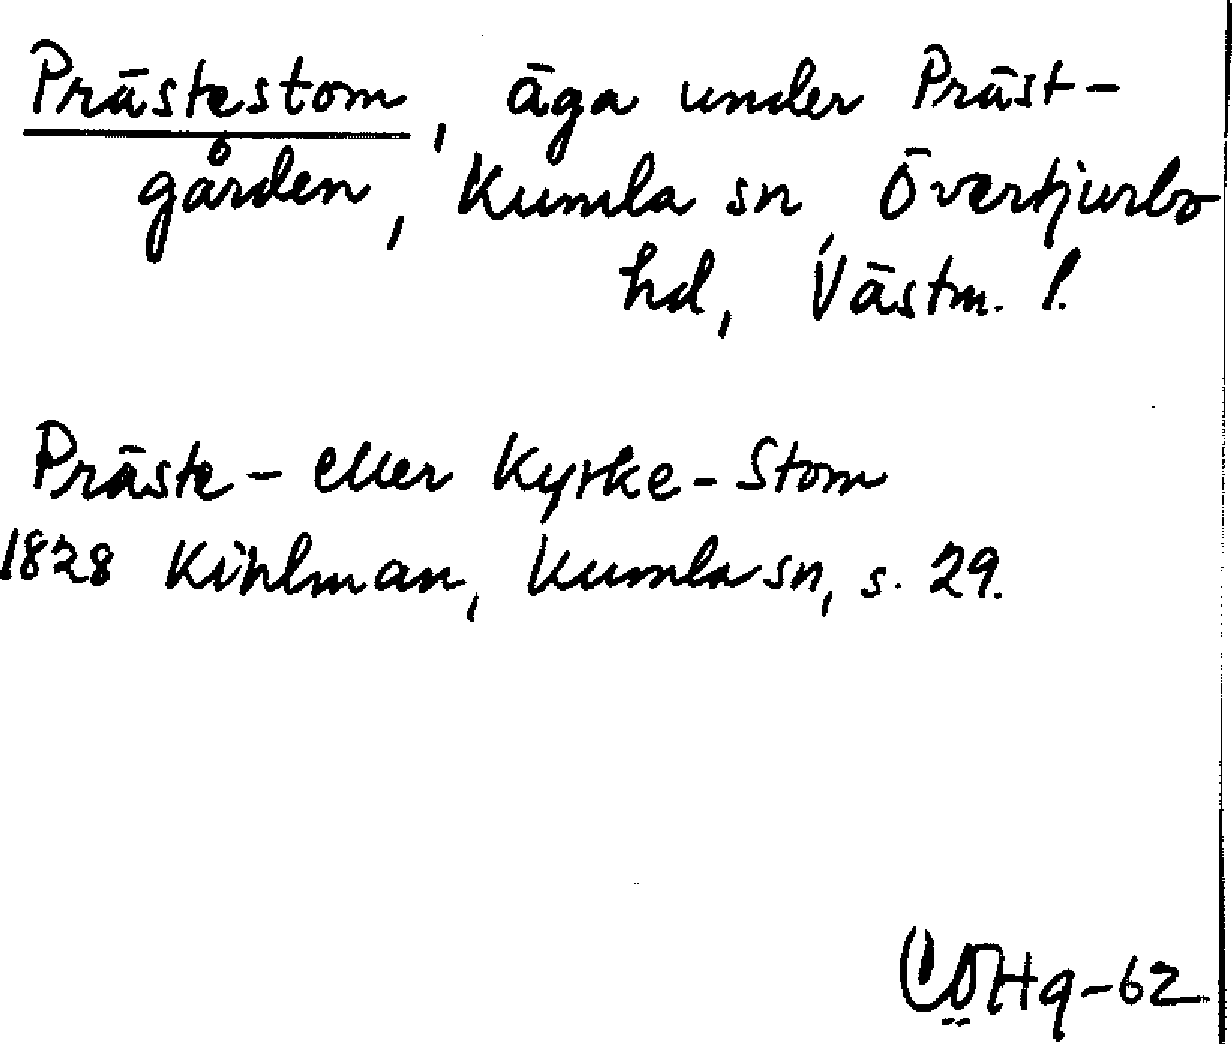 Prästestom, äga under Präst-
gården, Kumla sn Övertjurbo
hd, Västm. l.
Präste- eller Kyrke-Stom
1828 Kihlman, Kumla sn, s. 29.
-62